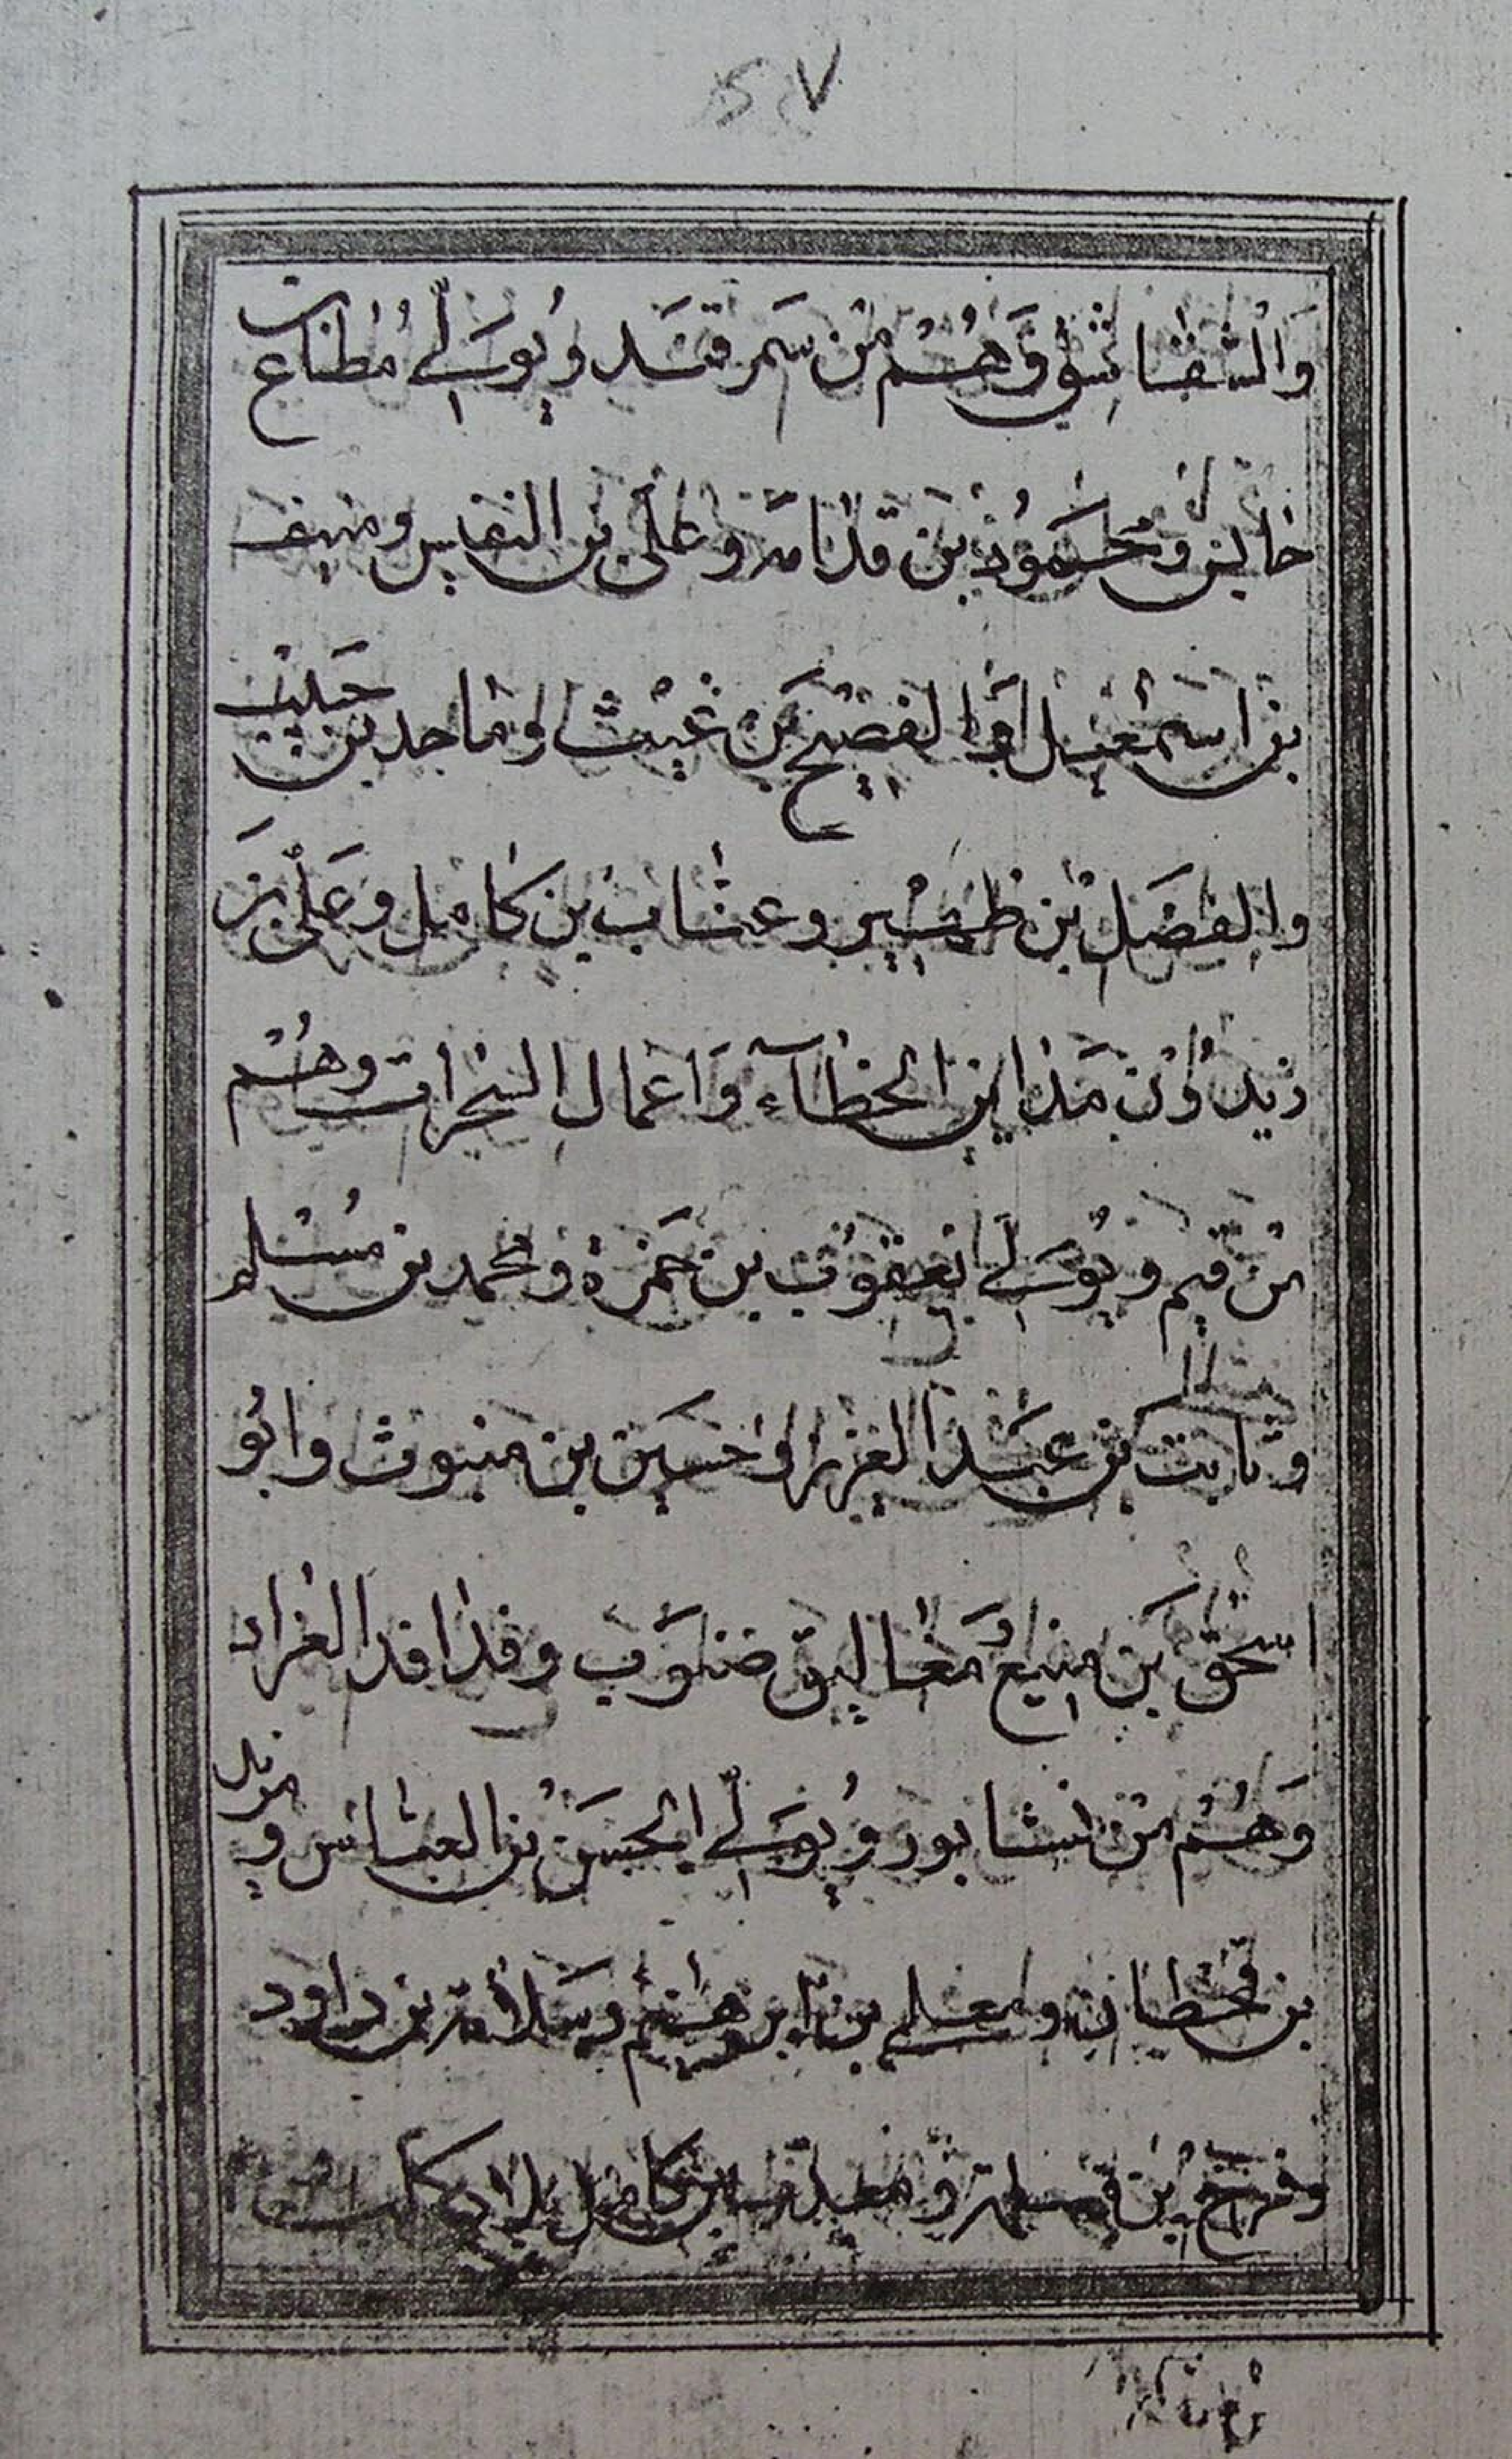 ٢٧
والشقاشق وهم من سمرقند ويولي مطاع بن
خاين ومحمود بن قدامه وعلي بن النفيس ومنيف
بن اسمعيل والفصيح بن غيث وماجد بن حبيب
والفضل بن ظهير وعتاب بن كامل وعلي بن
زيد من مداين الخطآء واعمال السخرات وهم
من قم ويولي يعقوب بن حمزة ومحمد بن مسلم
وثابت بن عبد العزيز وحسين بن مبنوث وابو
اسحق بن منيع مغاليق ضنوب وفدافد الغراد
وهم من نشابور ويولي الحسن بن العباس ومريد
بن قحطان ومعلم بن ابرهيم وسلامه بن داود
وفرج بن مسلمة ومعد بن كامل بلاد كلب